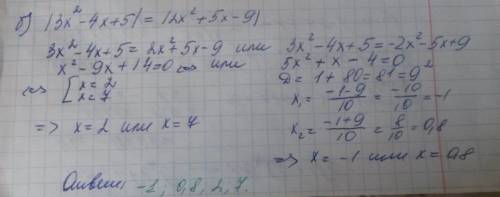 б) |3x² - 4x + 5| = |2x² + 5x - 9|
3x² - 4x + 5 = 2x² + 5x - 9 или 3x² - 4x + 5 = -2x² - 5x + 9
x² - 9x + 14 = 0 ⇔ или 5x² + x - 4 = 0
⇔ [x = 2
x = 7
Д = 1 + 80 = 81 = 9²
x₁ = (-1-9)/10 = -10/10 = -1
x₂ = (-1+9)/10 = 8/10 = 0,8
=> x = 2 или x = 7
=> x = -1 или x = 0,8
Ответ: -1; 0,8; 2; 7.